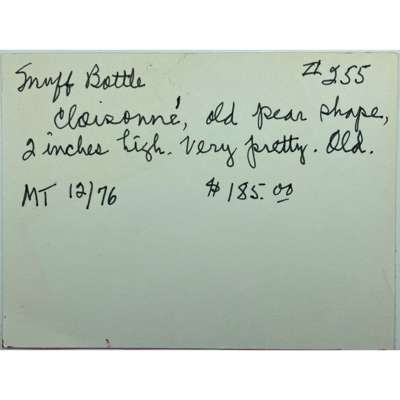 Snuff Bottle #255
Cloisonné, old pear shape,
2 inches high. Very pretty. Old.
MT 12/76 $185.00